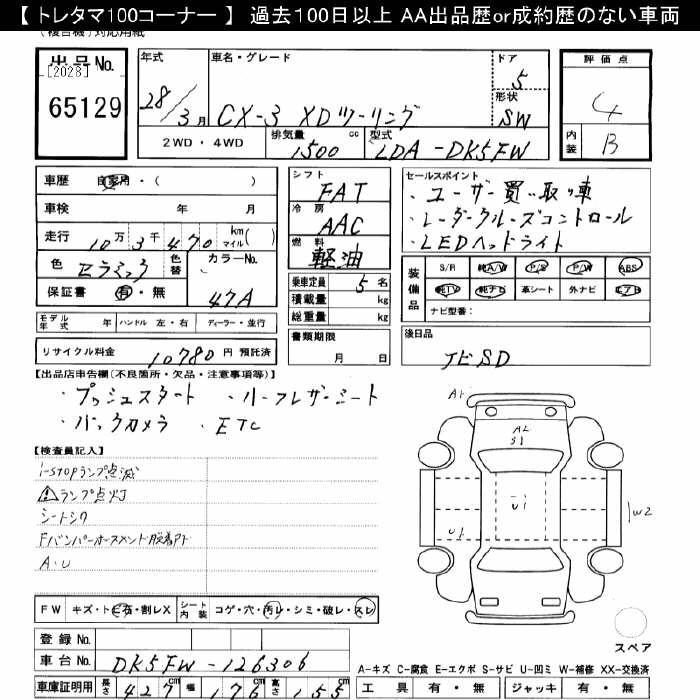 【 トレタマ100コーナー 】 過去100日以上 AA出品歴or成約歴のない車両
(複合機)対応用紙
出品No.
[2028]
65129
年式
28/3月
車名・グレード
CX-3 XDツーリング
ドア
5
形状
SW
評価点
4
内装
B
2WD ・ 4WD
排気量
1500 cc
型式
LDA-DK5FW
車歴 自家用・( )
車検 年 月
走行 10万 3千 470 km マイル( )
色 セラミック
色替
カラーNo.
47A
保証書 有・無
モデル年式 年
ハンドル 左・右
ディーラー・並行
リサイクル料金 10780 円 預託済
シフト
FAT
冷房
AAC
燃料
軽油
乗車定員 5 名
積載量 kg
総重量 kg
書類期限
月 日
セールスポイント
・ユーザー買い取り車
・レーダークルーズコントロール
・LEDヘッドライト
装備品
S/R 純A/W P/S P/W ABS
純TV 純ナビ 革シート 外ナビ エアB
ナビ型番:
後日品
ナビSD
【出品店申告欄(不良箇所・欠品・注意事項等)】
・プッシュスタート ・ハーフレザーシート
・バックカメラ ・ETC
【検査員記入】
i-STOPランプ点滅
⚠ランプ点灯
シートシワ
A・U
A1
A2
S1
U1
U1
W2
スペア
FW キズ・トビ石・割レX
シート内装 コゲ・穴・汚レ・シミ・破レ・スレ
登録No.
車台No. DK5FW-126306
車庫証明用 長さ 427cm 幅 176cm 高さ 155cm
A-キズ C-腐食 E-エクボ S-サビ U-凹ミ W-補修 XX-交換済
工具 有・無 ジャッキ 有・無